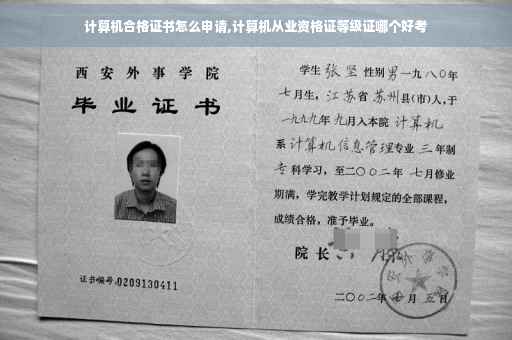 计算机合格证书怎么申请,计算机从业资格证等级证哪个好考
西安外事学院
毕业证书
证书编号:0209130411
学生 张坚 性别 男 一九八〇年
七月生，江苏省 苏州 县(市)人，于
一九九九年 九月入本院 计算机
系 计算机信息管理专业 三 年制
专科学习，至二〇〇二年 七月修业
期满，学完教学计划规定的全部课程，
成绩合格，准予毕业。
院长
二〇〇二年 月 五日